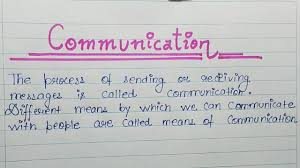 Communication
The process of sending or recliving
messages is called communication.
Different means by which we can communicate
with people are called means of communication